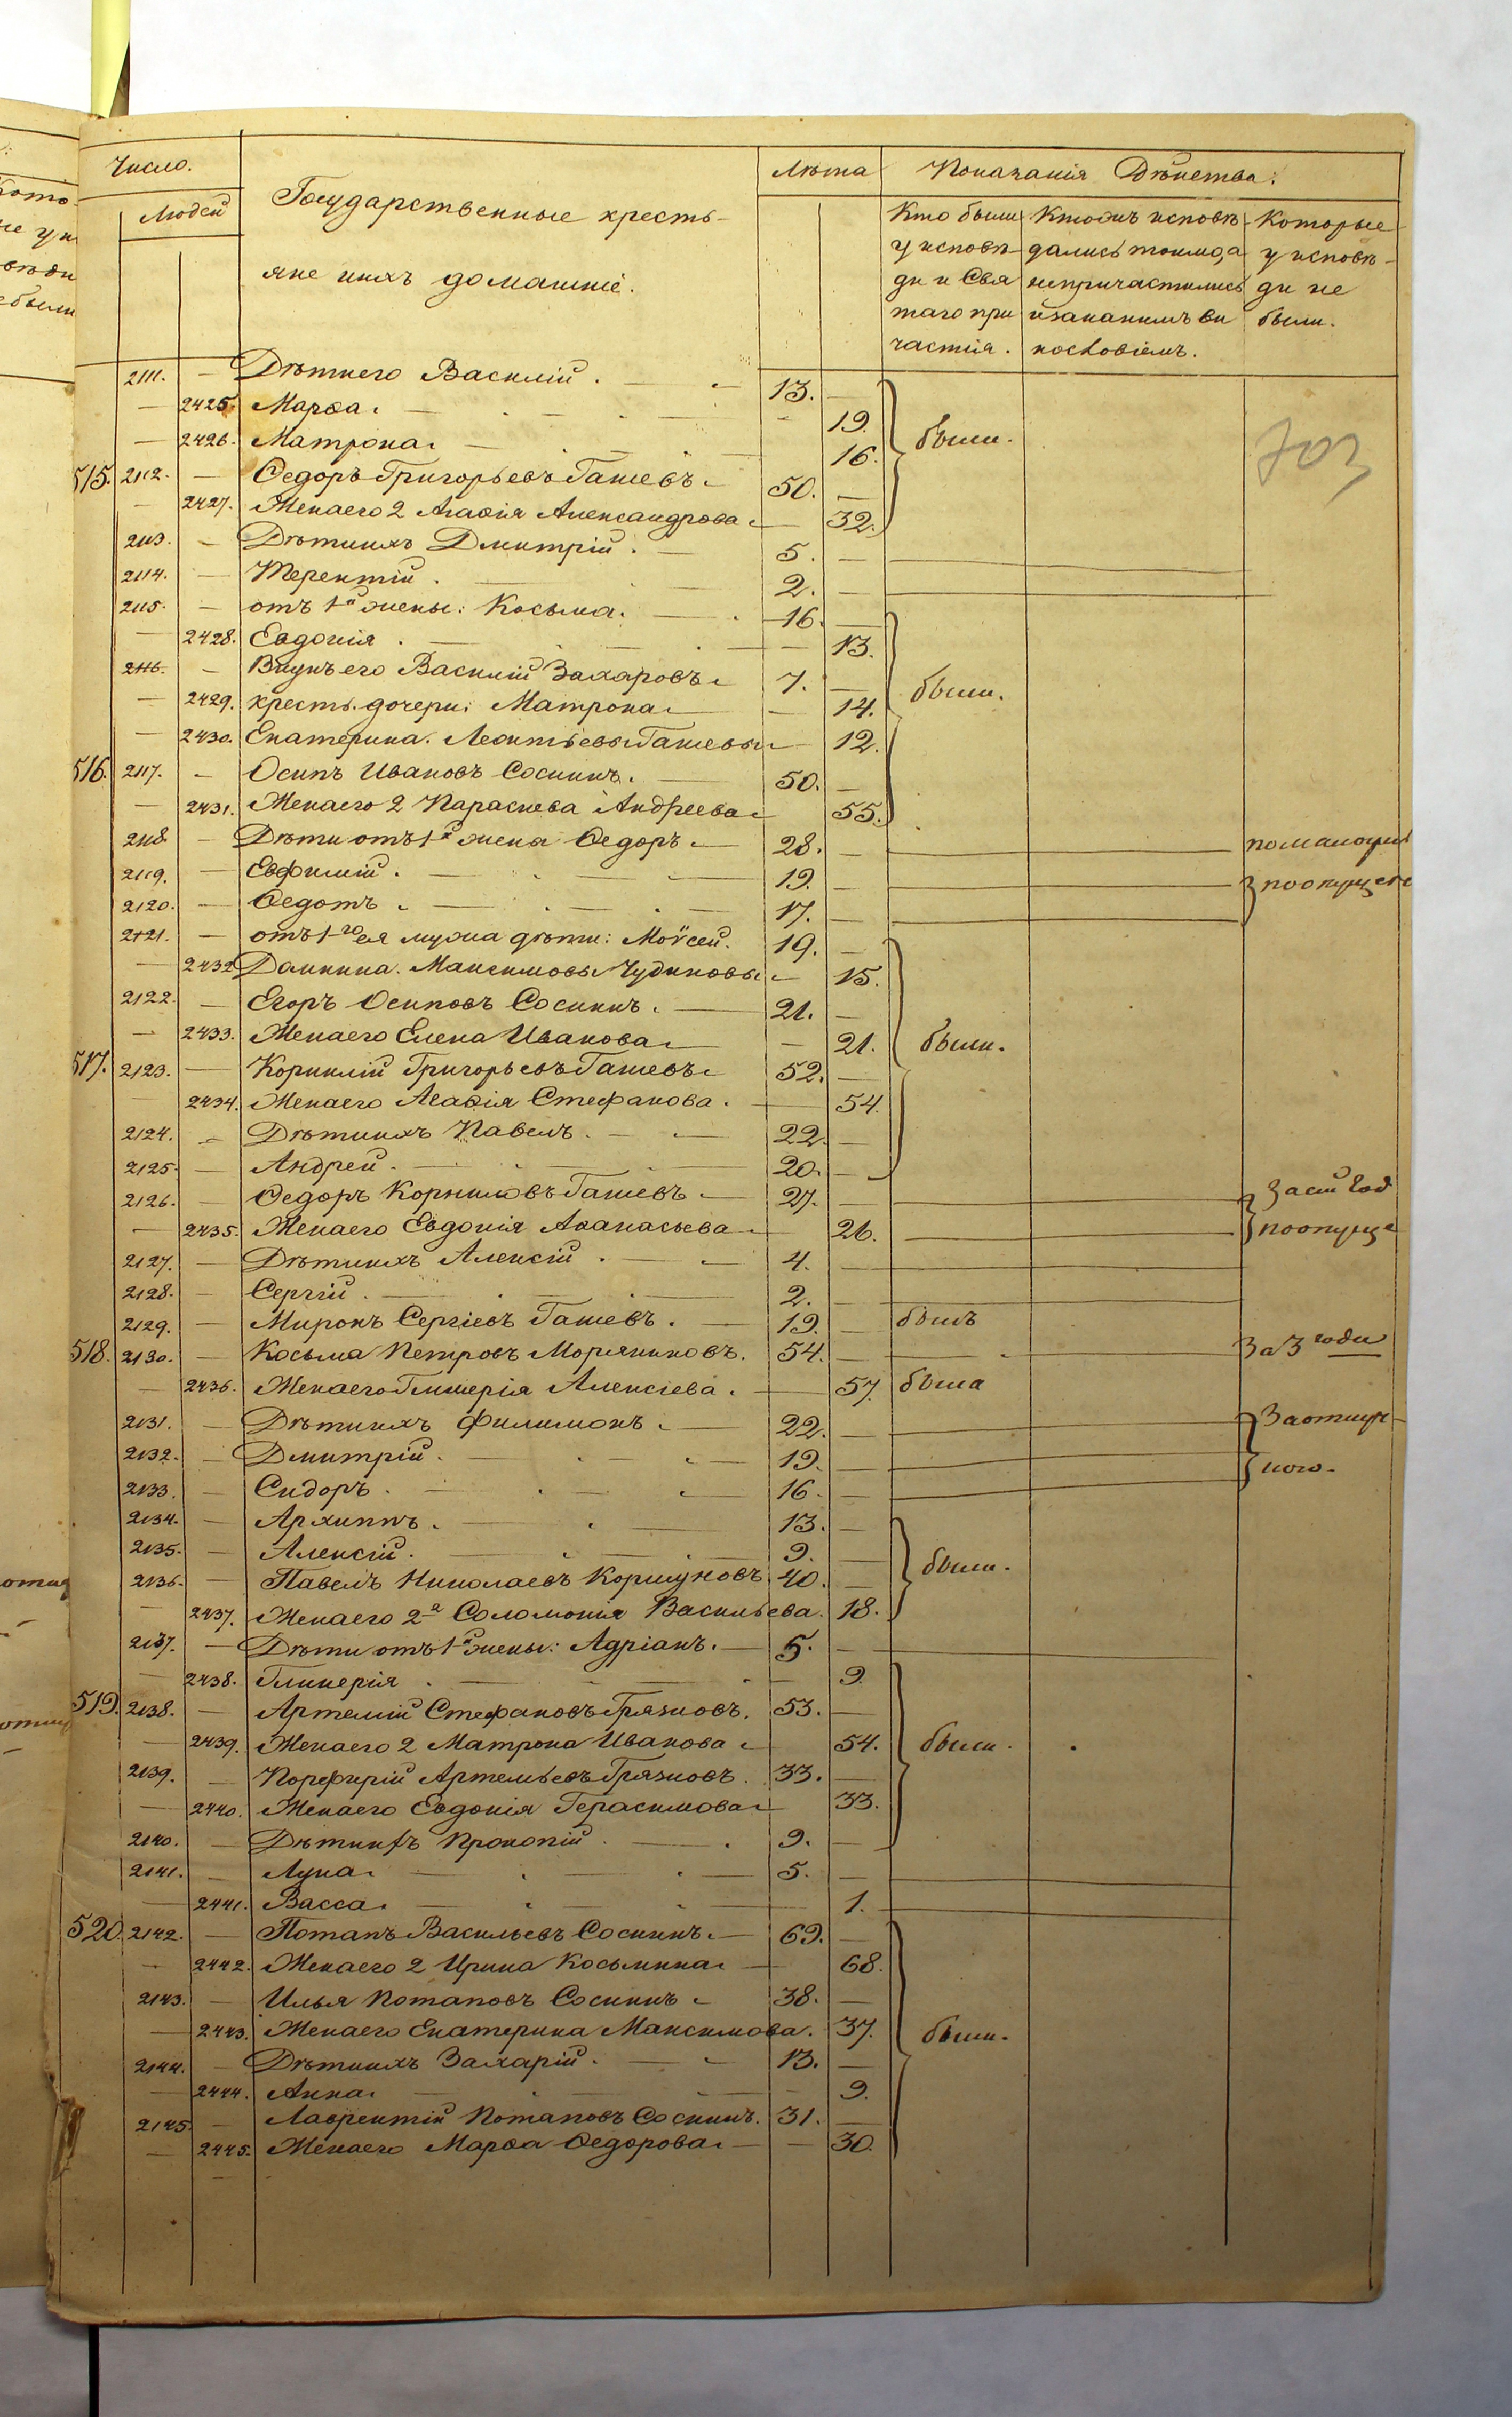 Число. Лѣта Показанія Дѣйства:
Людей Государственные кресть-
яне ихъ домашніе.
Кто были Ктожъ исповѣ- Которые
у исповѣ- дались токмо, а у исповѣ-
ди и Свя непричастились ди не
таго при и за какимъ ви были.
частія. нословіемъ.
703
2111. — Дѣти его Василій. 13. —
— 2425. Марѳа. — 19.
— 2426. Матрона. — 16. были.
515. 2112. — Ѳедоръ Григорьевъ Гашевъ. 50. —
— 2427. Жена его 2 Агаѳія Александрова. — 32.
2113. — Дѣти ихъ Дмитрій. 5. —
2114. — Терентій. 2. —
2115. — отъ 1й жены: Косьма. 16. —
— 2428. Евдокія. — 13.
2116. — Внукъ его Василій Захаровъ. 7. — были.
— 2429. кресть. дочери: Матрона. — 14.
— 2430. Екатерина. Леонтьевы Гашевы. — 12.
516. 2117. — Осипъ Ивановъ Сосникъ. 50. —
— 2431. Жена его 2 Параскева Андреева. — 55.
2118. — Дѣти отъ 1й жены Ѳедоръ. 28. —
2119. — Евфимій. 19. —
2120. — Ѳедотъ. 17. —
2121. — отъ 1го ея мужа дѣти: Моѵсей. 19. —
— 2432. Домника. Максимовы Чудиновы. — 15.
2122. — Егоръ Осиповъ Сосникъ. 21. —
— 2433. Жена его Елена Иванова. — 21. были.
517. 2123. — Корнилій Григорьевъ Гашевъ. 52. —
— 2434. Жена его Агаѳія Стефанова. — 54.
2124. — Дѣти ихъ Павелъ. 22. —
2125. — Андрей. 20. —
2126. — Ѳедоръ Корниловъ Гашевъ. 27. —
— 2435. Жена его Евдокія Аѳанасьева. — 26.
2127. — Дѣти ихъ Алексій. 4. —
2128. — Сергій. 2. —
2129. — Миронъ Сергіевъ Гашевъ. 19. — былъ
518. 2130. — Косьма Петровъ Моряниновъ. 54. — За 3 годы
— 2436. Жена его Гликерія Алексіева. — 57. была
2131. — Дѣти ихъ Филимонъ. 22. —
2132. — Дмитрій. 19. —
2133. — Сидоръ. 16. —
2134. — Архиппъ. 13. —
2135. — Алексій. 9. —
2136. — Павелъ Николаевъ Коршуновъ 40. — были.
— 2437. Жена его 2я Соломонія Васильева. 18.
2137. — Дѣти отъ 1й жены: Адріанъ. 5. —
— 2438. Гликерія. — 9.
519. 2138. — Артемій Стефановъ Грязновъ. 53. —
— 2439. Жена его 2 Матрона Иванова. 54. были.
2139. — Порфирій Артемьевъ Грязновъ. 33. —
— 2440. Жена его Евдокія Герасимова. 33.
2140. — Дѣти ихъ Прокопій. 9. —
2141. — Лука. 5. —
— 2441. Васса. 1.
520. 2142. — Потапъ Васильевъ Сосникъ. 69. —
— 2442. Жена его 2 Ирина Косьмина. 68.
2143. — Илья Потаповъ Сосникъ. 38. —
— 2443. Жена его Екатерина Максимова. 37. были.
2144. — Дѣти ихъ Захарій. 13. —
— 2444. Анна. — 9.
2145. — Лаврентій Потаповъ Сосникъ. 31. —
— 2445. Жена его Марѳа Ѳедорова. — 30.